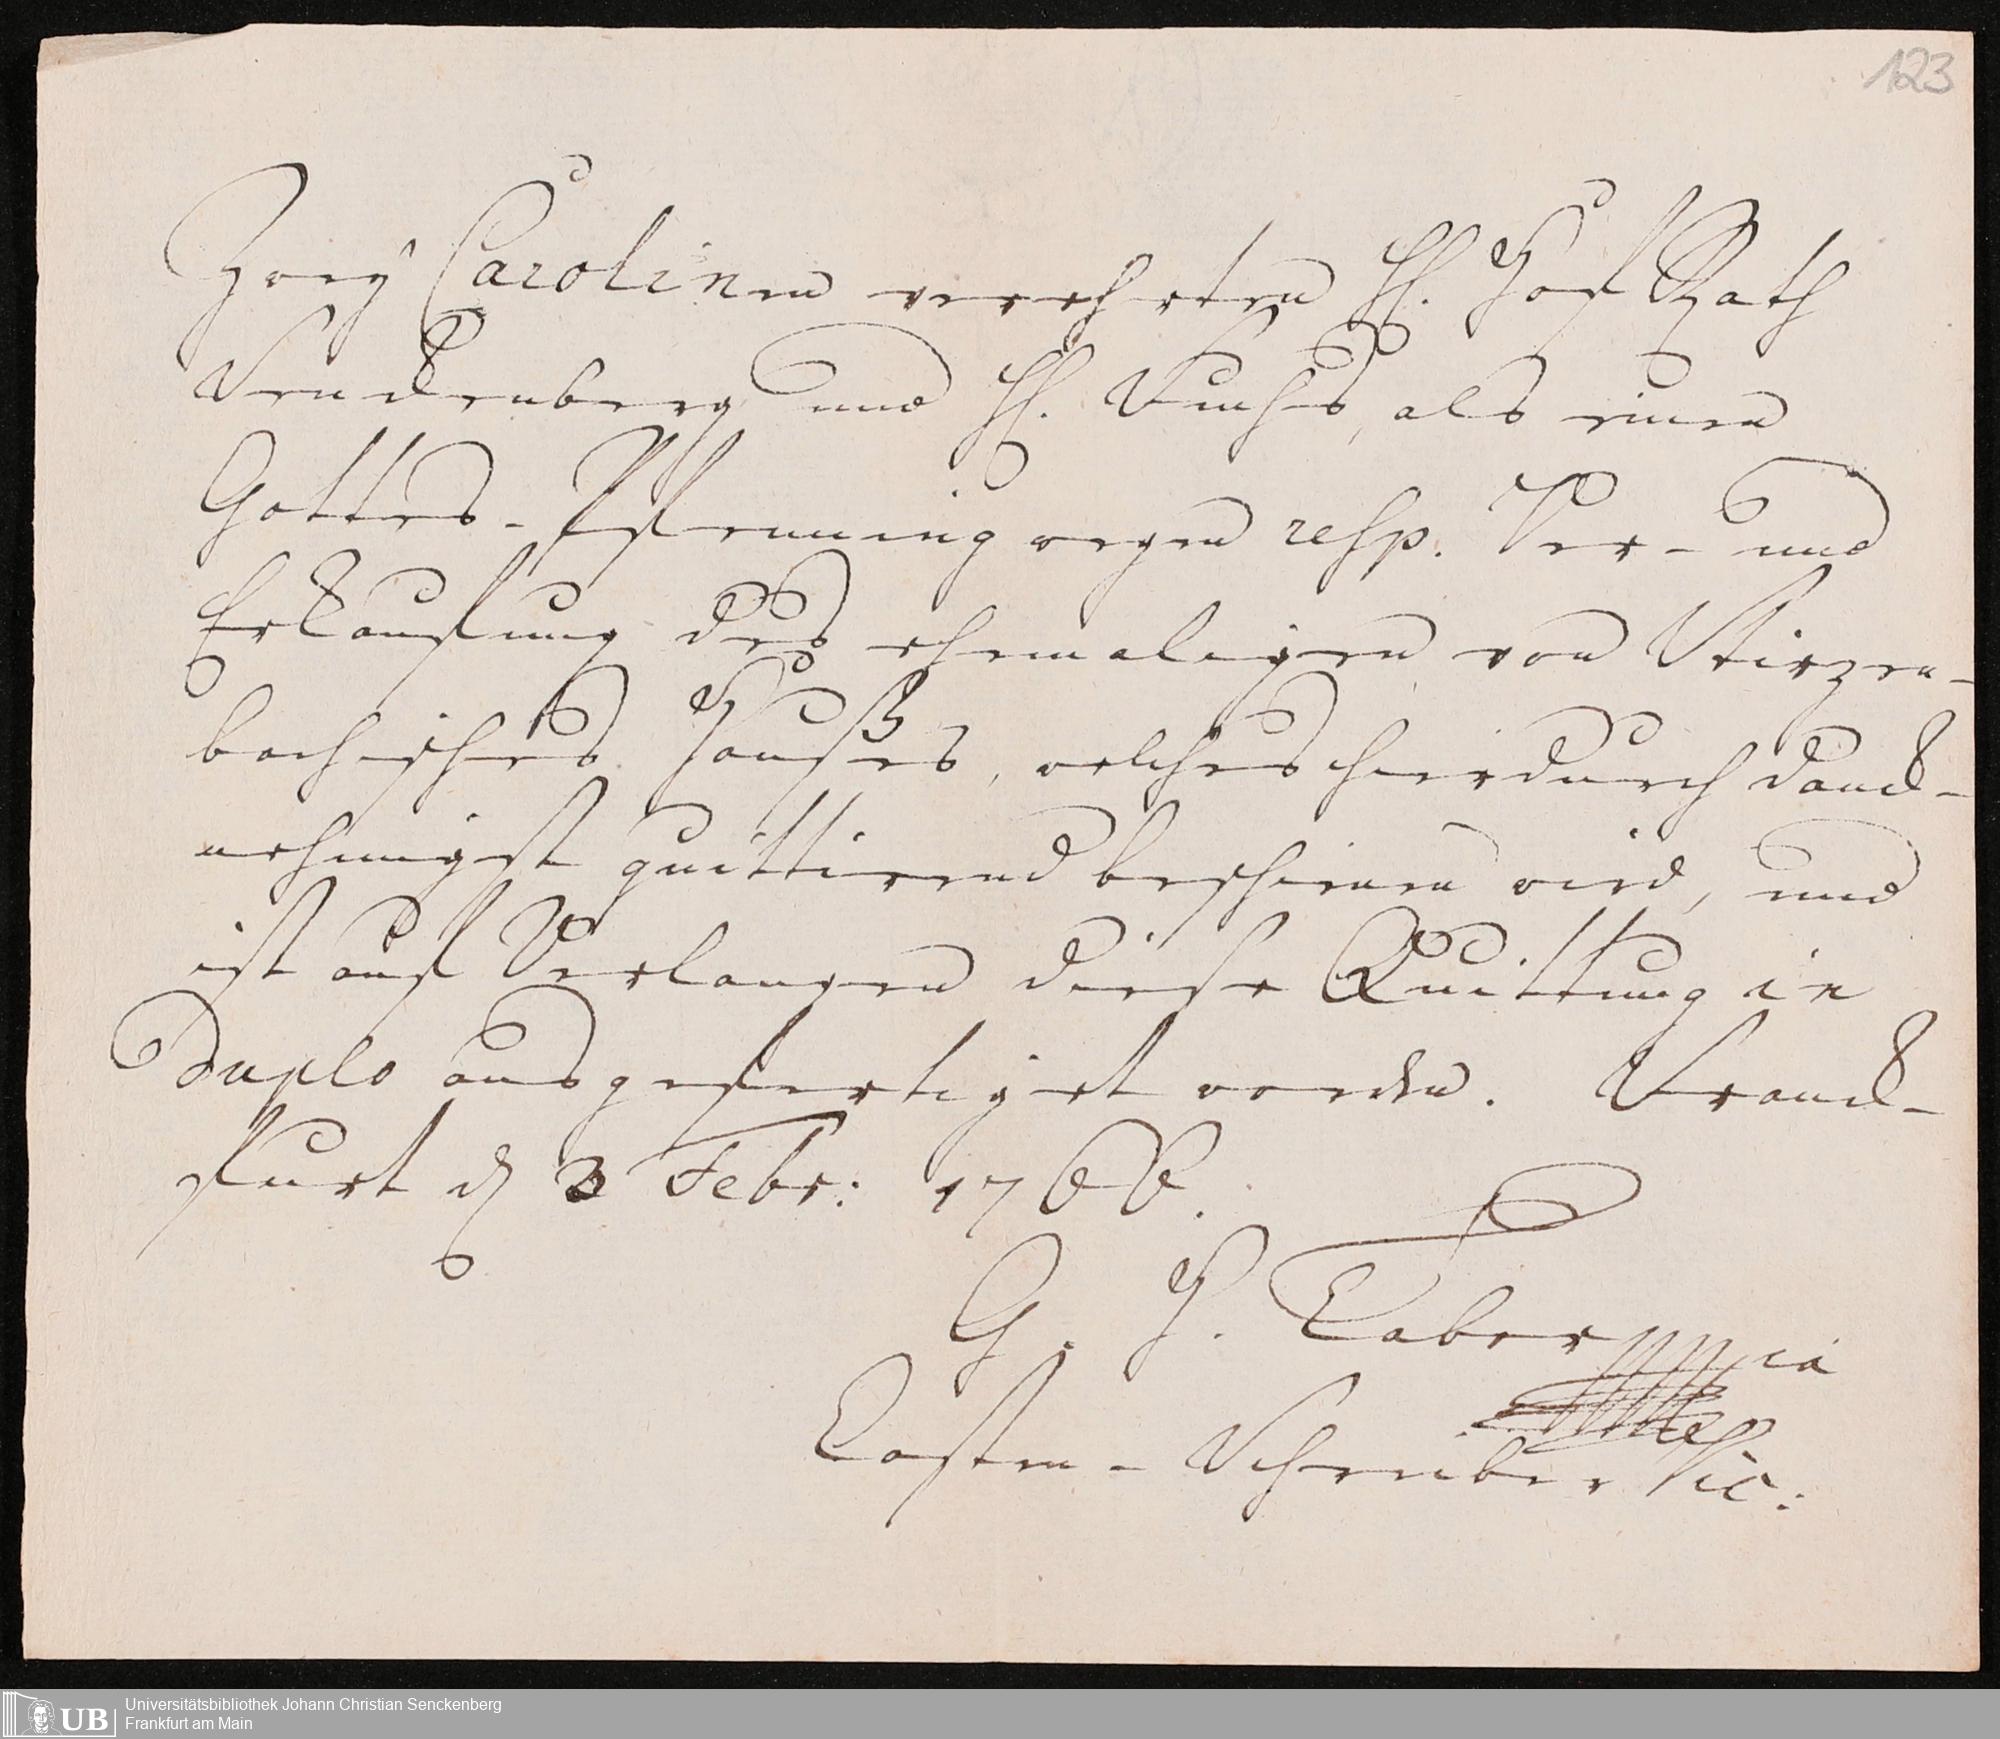 123
Zwey Carolinen verehrten H. Hof Rath
Senckenberg und H. Fuchs, als einen
Gottes-Pfenning wegen resp. Ver- und
Erkaufung des ehemaligen von Stirzen-
bachisches Haußes, welches hierdurch danck-
nehmigst quittirend beschienen wird, und
ist auf Verlangen diese Quittung in
Duplo ausgefertiget worden. Franck-
furt d 3 Febr: 1766.
G. H. Taber
Casten-Schreiber
UB Universitätsbibliothek Johann Christian Senckenberg
Frankfurt am Main